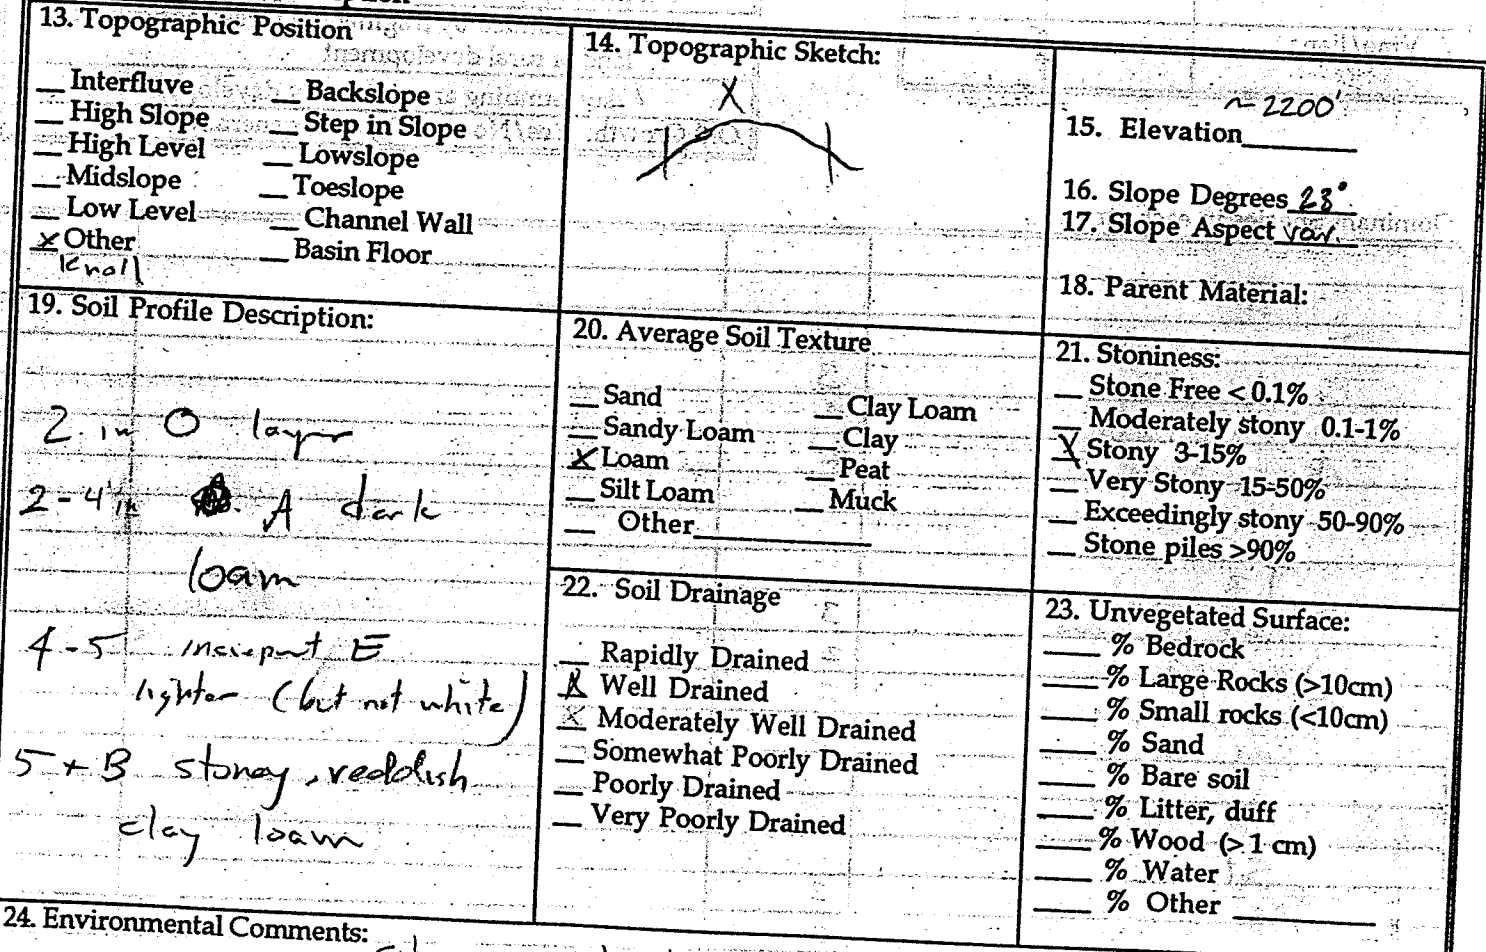 13. Topographic Position
__ Interfluve __ Backslope
__ High Slope __ Step in Slope
__ High Level __ Lowslope
__ Midslope __ Toeslope
__ Low Level __ Channel Wall
X Other __ Basin Floor
Knoll
14. Topographic Sketch:
X
~2200'
15. Elevation______
16. Slope Degrees 23°
17. Slope Aspect var.
18. Parent Material:
19. Soil Profile Description:
2 in O layer
2-4 in A dark
loam
4-5 incipient E
lighter (but not white)
5+ B stoney, reddish
clay loam
20. Average Soil Texture
__ Sand __ Clay Loam
__ Sandy Loam __ Clay
X Loam __ Peat
__ Silt Loam __ Muck
__ Other__________
21. Stoniness:
__ Stone Free < 0.1%
__ Moderately stony 0.1-1%
X Stony 3-15%
__ Very Stony 15-50%
__ Exceedingly stony 50-90%
__ Stone piles >90%
22. Soil Drainage
__ Rapidly Drained
X Well Drained
X Moderately Well Drained
__ Somewhat Poorly Drained
__ Poorly Drained
__ Very Poorly Drained
23. Unvegetated Surface:
____ % Bedrock
____ % Large Rocks (>10cm)
____ % Small rocks (<10cm)
____ % Sand
____ % Bare soil
____ % Litter, duff
____ % Wood (> 1 cm)
____ % Water
____ % Other __________
24. Environmental Comments: